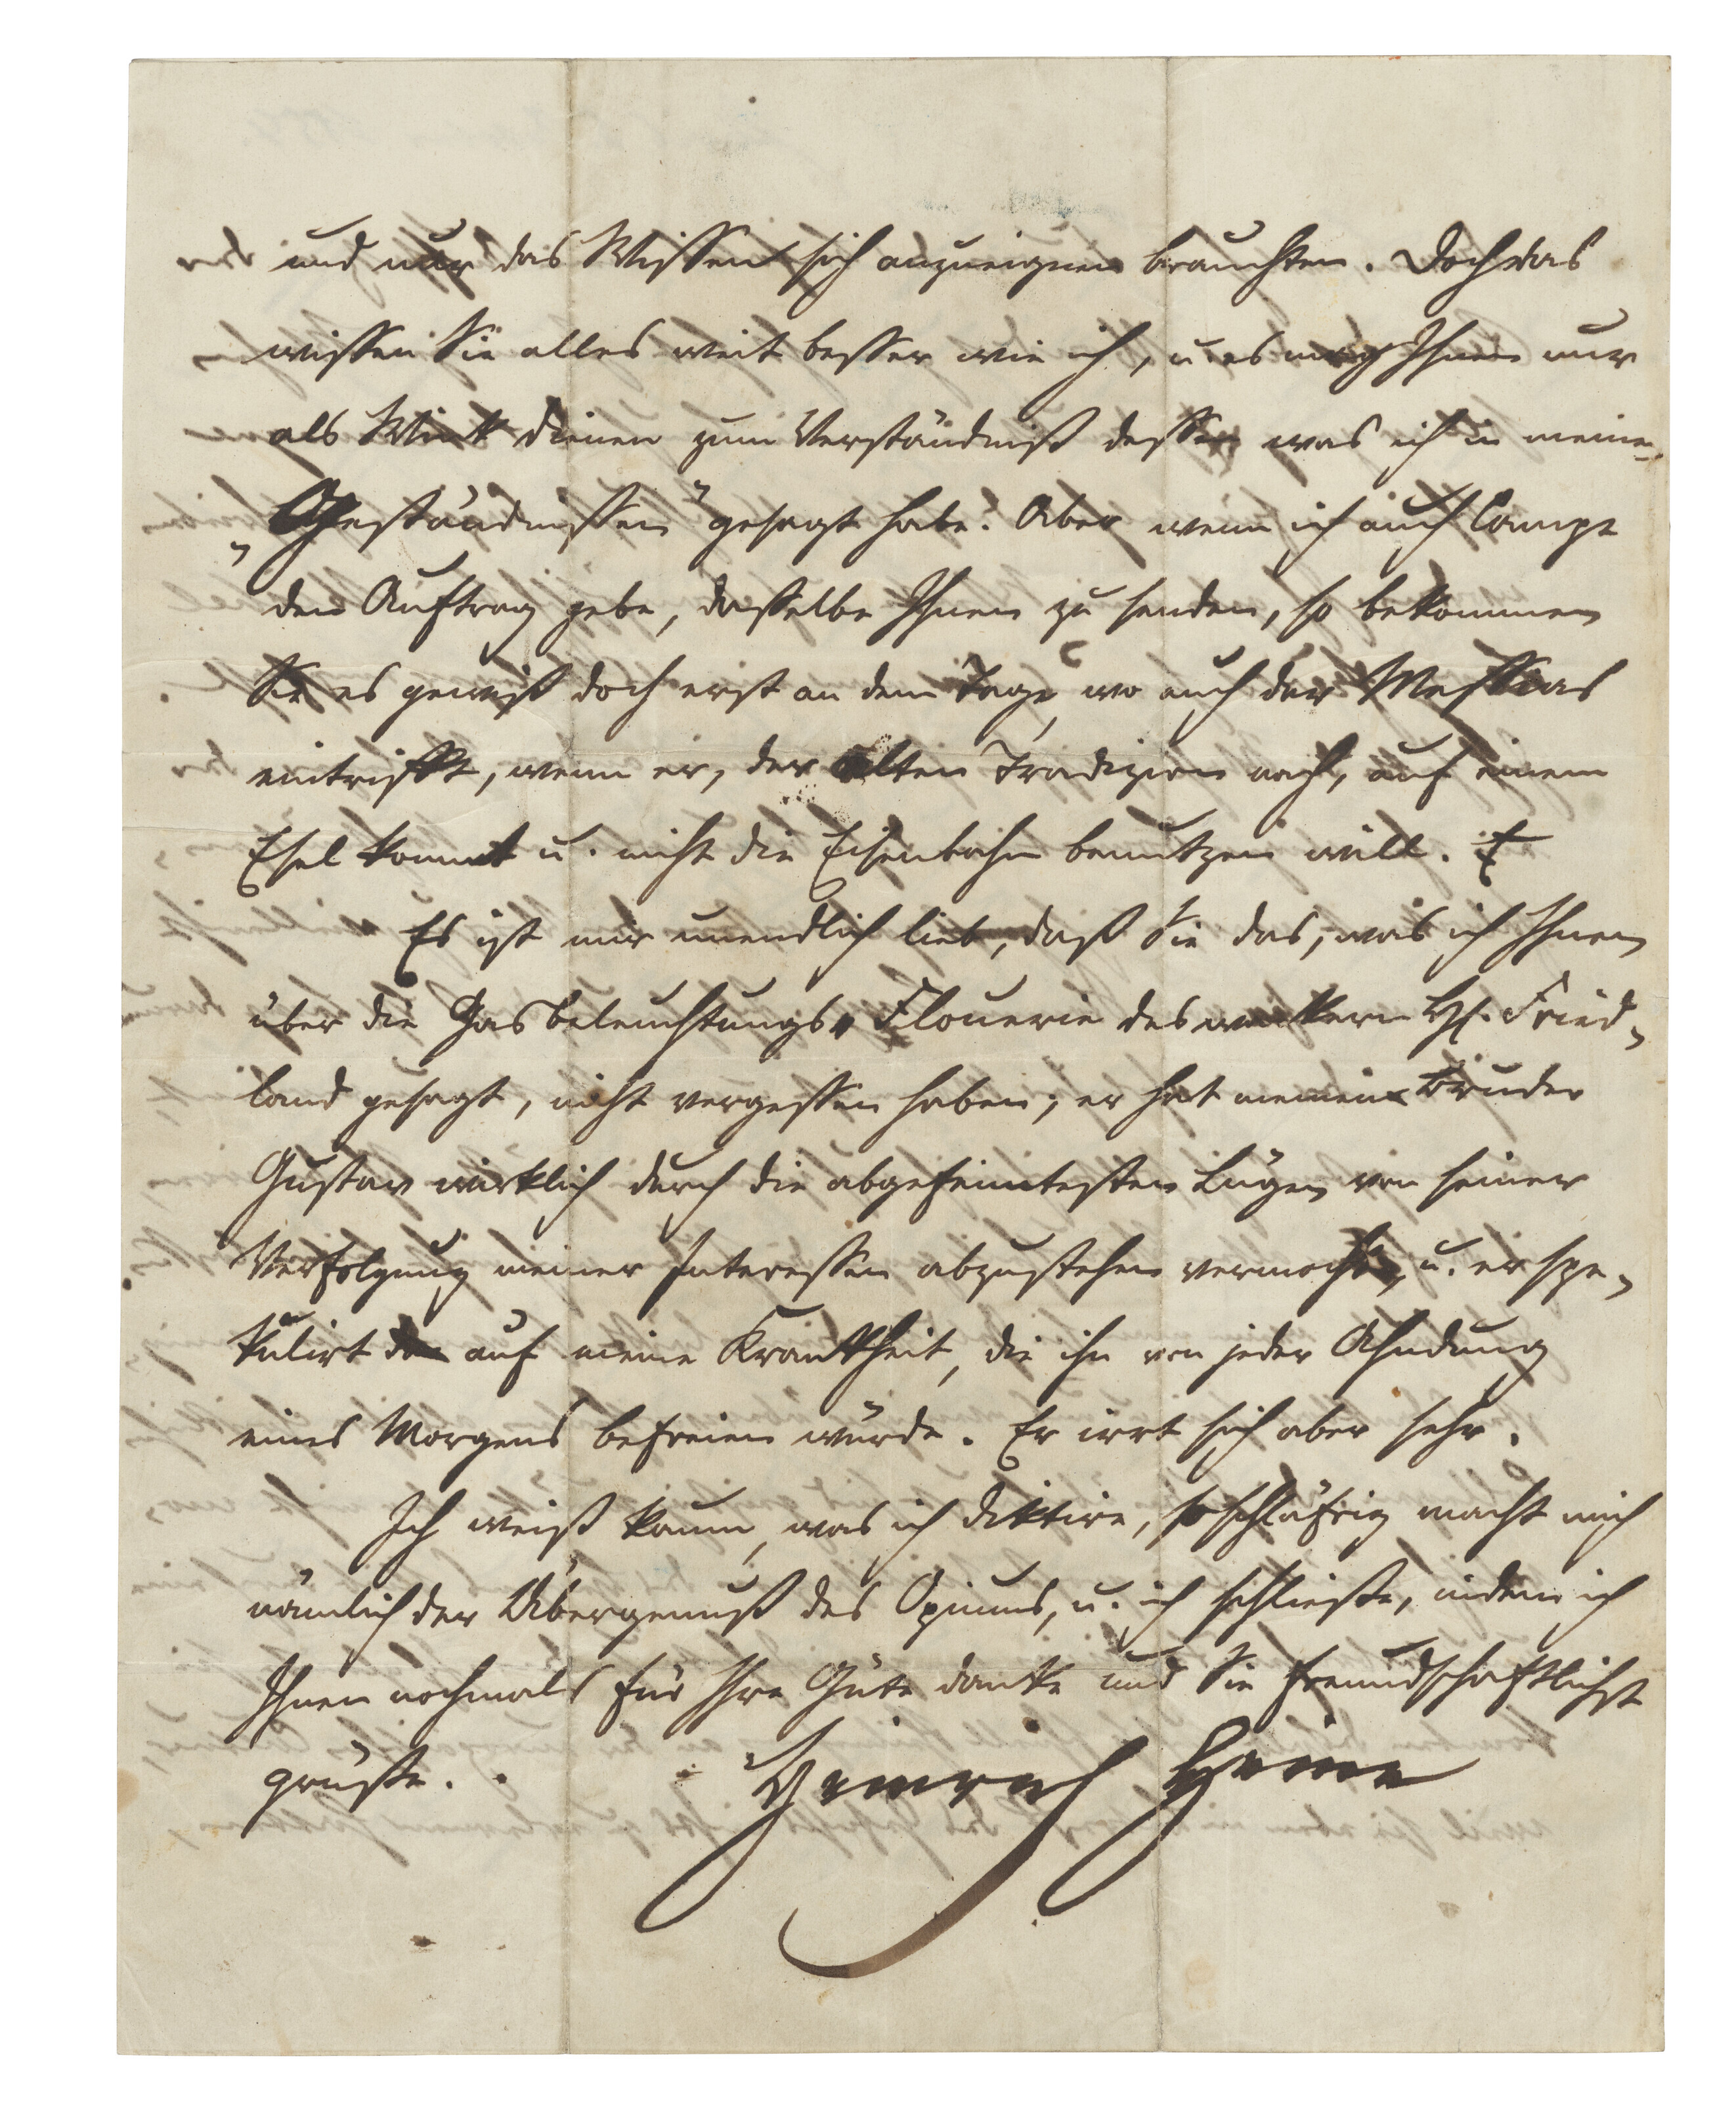 und nur das Wissen sich anzueignen brauchten. Doch das
wissen Sie alles weit besser wie ich, u. es mag Ihnen nur
als Wink dienen zum Verständniß dessen was ich in meinen
„Geständnissen" gesagt habe. Aber wenn ich auch Campe
den Auftrag gebe, dasselbe Ihnen zu senden, so bekommen
Sie es gewiß doch erst an dem Tage, wo auch der Messias
eintrifft, wenn er, der alten Tradizion nach, auf einem
Esel kommt u. nicht die Eisenbahn benutzen will.
Es ist mir unendlich lieb, daß Sie das, was ich Ihnen
über die Gasbeleuchtungs-Flouerie des wackern H. Fried-
land gesagt, nicht vergessen haben; er hat meinen Bruder
Gustav wirklich durch die abgefeimtesten Lügen von seiner
Verfolgung meiner Interessen abzustehen vermocht, u. er spe-
kulirt auf meine Krankheit, die ihn von jeder Ahndung
eines Morgens befreien würde. Er irrt sich aber sehr.
Ich weiß kaum, was ich diktire, so schläfrig macht mich
nämlich der Übergenuß des Opiums, u. ich schließe, indem ich
Ihnen nochmals für Ihre Güte danke und Sie freundschaftlichst
grüße.
Heinrich Heine